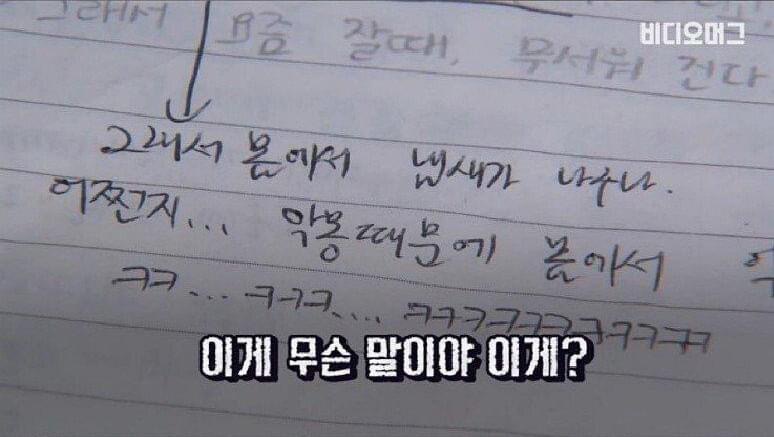 비디오머그
그래서 요즘 잘때, 무서워 건다
그래서 몸에서 냅새가 나구나.
어쩐지... 악몽때문에 몸에서
ㅋㅋ... ㅋㅋㅋ.... ㅋㅋㅋㅋㅋㅋㅋㅋㅋㅋㅋ
이게 무슨 말이야 이게?